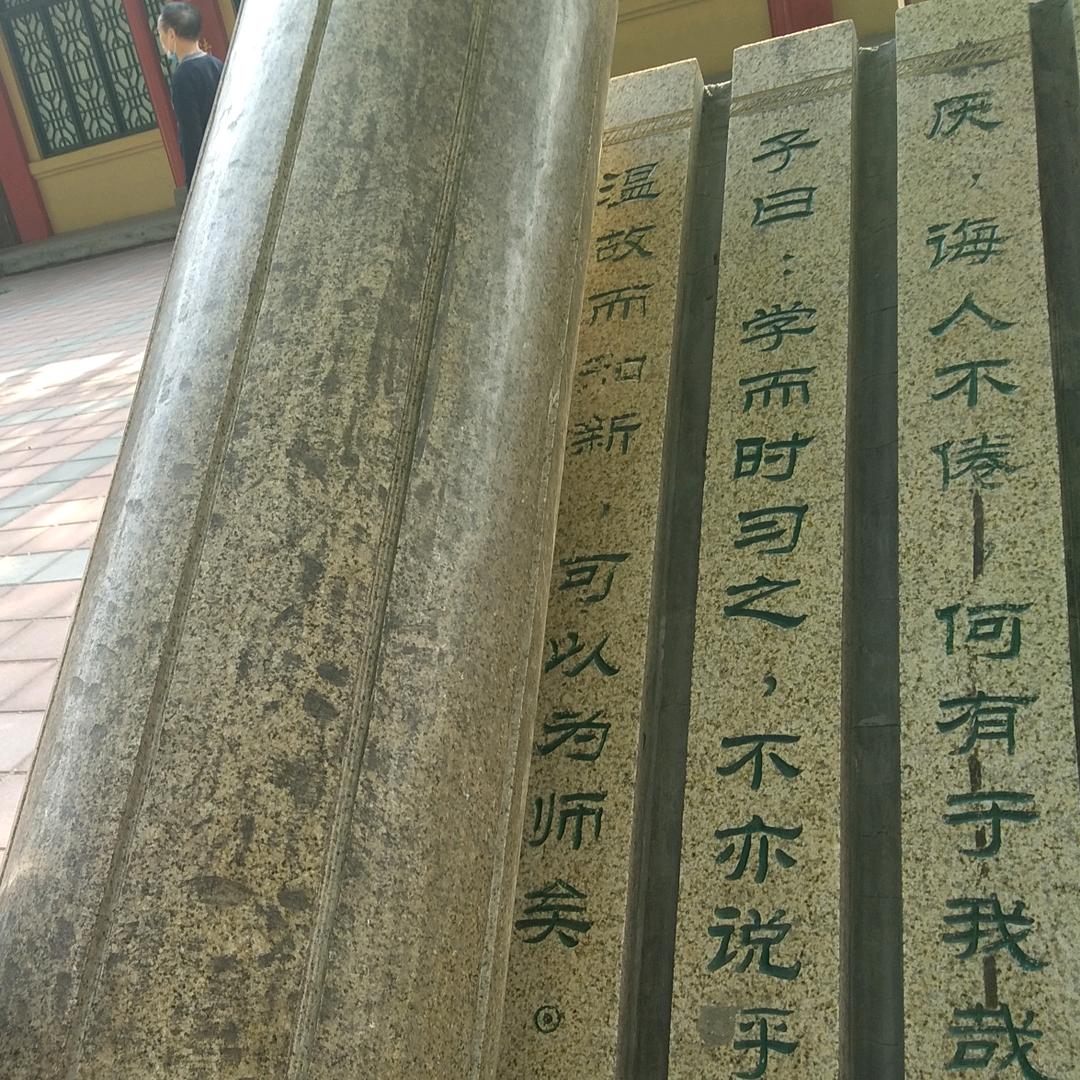 厌，诲人不倦何有于我哉
子曰：学而时习之，不亦说乎
温故而知新，可以为师矣。